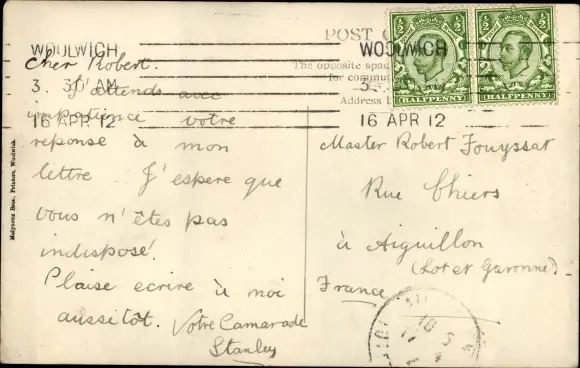 WOOLWICH
3. 30 AM
16 APR 12
WOOLWICH
3.
16 APR 12
POST
The opposite spac
for commu
Address
½ ½
HALFPENNY
½ ½
HALFPENNY
Cher Robert.
J'attends avec
impatience votre
réponse à mon
lettre. J'espere que
vous n'êtes pas
indisposé.
Plaise ecrire à moi
aussitôt. Votre Camarade
Stanley
Master Robert Fouyssat
Rue Thiers
à Aiguillon
(Lot et Garonne)
France
Molyneux Bros., Printers, Woolwich.